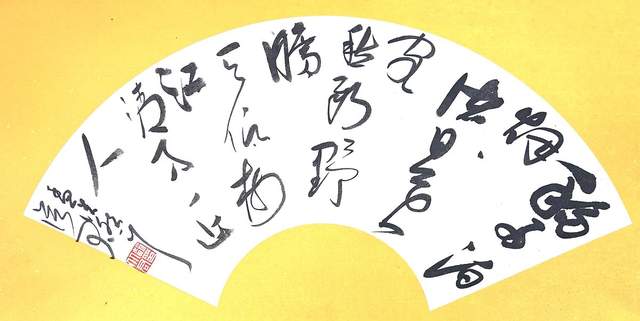 移舟泊烟
渚日暮
客
愁新野
旷
天低树
江
清月近
人